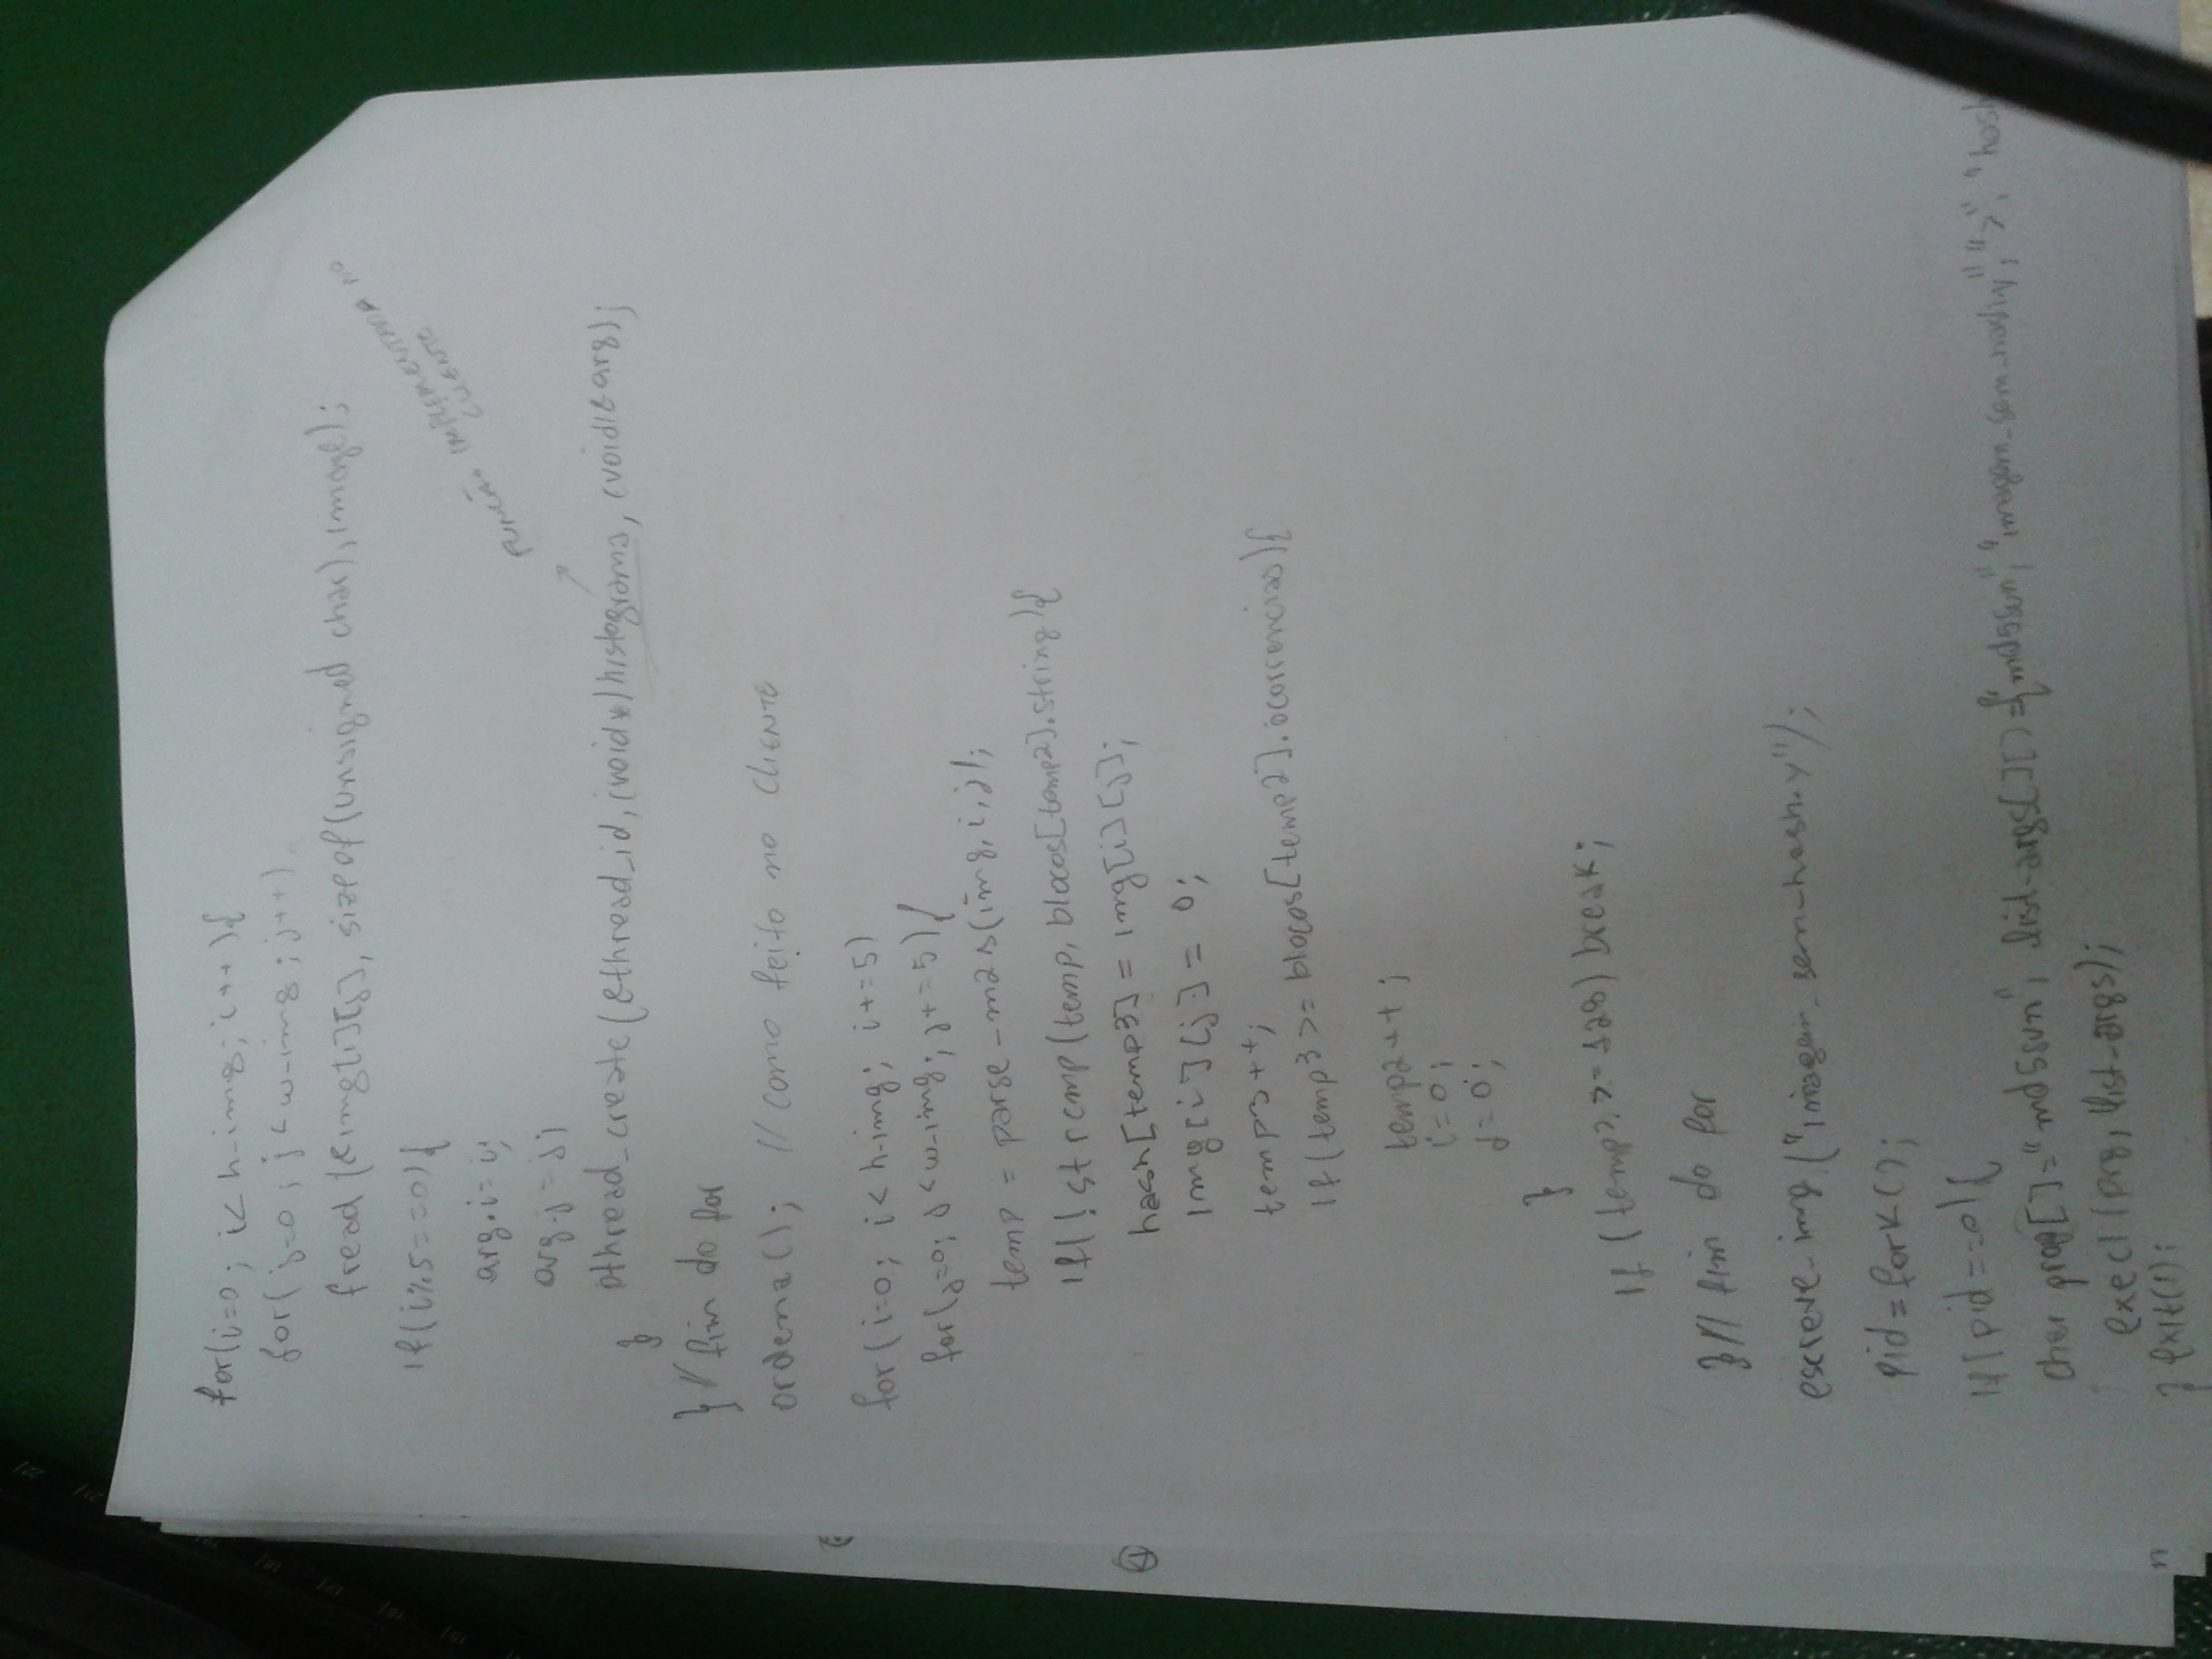 for(i=0; i<h-img; i++){
for(j=0; j<w-img; j++)
fread(&img[i][j], sizeof(unsigned char), image);
if(i%5==0){
arg.i=i;
arg.j=j;
pthread_create(&thread_id, (void*)histograma, (void)&arg);
FUNÇÃO IMPLEMENTADA NO
CLIENTE
}
} // fim do for
ordena(); // como feito no CLIENTE
for(i=0; i<h-img; i+=5)
for(j=0; j<w-img; j+=5){
temp = parse-m2s(img,i,j);
if(!strcmp(temp, blocos[temp2].string){
hash[temp3] = img[i][j];
img[i][j] = 0;
temp3++;
if(temp3 >= blocos[temp2].ocorrencias){
temp2++;
i=0;
j=0;
}
if(temp3>=128) break;
} // fim do for
escreve-img("imagem-sem-hash.y");
pid=fork();
if(pid==0){
char prog[]="md5sum", list-args[][]={"md5sum", "imagem-sem-hash.y", ">", "hash
execl(prg, list-args);
} exit(1);